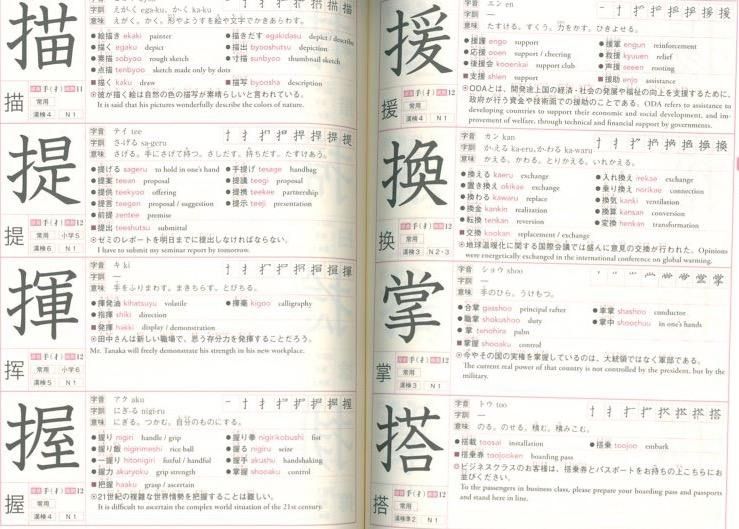 描
字訓 えが-く ega-ku、か-く ka-ku
意味 えがく。かく。形やようすを絵や文字でかきあらわす。
●絵描き ekaki painter
●描きだす egakidasu depict / describe
●描く egaku depict
●描出 byooshutsu depiction
●素描 sobyoo rough sketch
●寸描 sunbyoo thumbnail sketch
●点描 tenbyoo sketch made only by dots
■描く kaku draw
■描写 byoosha description
⊙彼が描く絵は自然の色の描写が素晴らしいと言われている。
It is said that his pictures wonderfully describe the colors of nature.
描
常用
漢検4 N1
提
字音 テイ tee
字訓 さ-げる sa-geru
意味 さげる。手にさげて持つ。さしだす。持ちだす。たすけあう。
●提げる sageru to hold in one's hand
●手提げ tesage handbag
●提案 teean proposal
●提議 teegi proposal
●提供 teekyoo offering
●提携 teekee partnership
●提言 teegen proposal / suggestion
●提示 teeji presentation
●前提 zentee premise
■提出 teeshutsu submittal
⊙ゼミのレポートを明日までに提出しなければならない。
I have to submit my seminar report by tomorrow.
提
手(扌) 12
常用 小学5
漢検6 N1
揮
字音 キ ki
字訓 —
意味 手をふりまわす。まきちらす。とびちる。
●揮発油 kihatsuyu volatile
●揮毫 kigoo calligraphy
●指揮 shiki direction
■発揮 hakki display / demonstration
⊙田中さんは新しい職場で、思う存分力を発揮することだろう。
Mr. Tanaka will freely demonstrate his strength in his new workplace.
挥
手(扌) 12
常用 小学6
漢検5 N1
握
字音 アク aku
字訓 にぎ-る nigi-ru
意味 にぎる。つかむ。自分のものにする。
●握り nigiri handle / grip
●握り拳 nigirikobushi fist
●握り飯 nigirimeshi rice ball
●握る nigiru seize
●一握り hitonigiri fistful / handful
●握手 akushu handshaking
●握力 akuryoku grip strength
●掌握 shooaku control
■把握 haaku grasp / ascertain
⊙21世紀の複雑な世界情勢を把握することは難しい。
It is difficult to ascertain the complex world situation of the 21st century.
握
手(扌) 12
常用
漢検4 N1
援
字音 エン en
字訓 —
意味 たすける。すくう。力をかす。ひきよせる。
●援護 engo support
●援軍 engun reinforcement
●応援 ooen support / cheering
●救援 kyuuen relief
●後援会 kooenkai support club
●声援 seeen rooting
■支援 shien support
■援助 enjo assistance
⊙ODAとは、開発途上国の経済・社会の発展や福祉の向上を支援するために、
政府が行う資金や技術面での援助のことである。 ODA refers to assistance to
developing countries to support their economic and social development, and im-
provement of welfare, through technical and financial support by governments.
援
手(扌) 12
常用
漢検4 N1
換
字音 カン kan
字訓 か-える ka-eru、か-わる ka-waru
意味 かえる。かわる。とりかえる。いれかえる。
●換える kaeru exchange
●入れ換え irekae exchange
●置き換え okikae exchange
●乗り換え norikae connection
●換わる kawaru replace
●換気 kanki ventilation
●換金 kankin realization
●換算 kansan conversion
●転換 tenkan reversion
●変換 henkan transformation
■交換 kookan replacement / exchange
⊙地球温暖化に関する国際会議では盛んに意見の交換が行われた。Opinions
were energetically exchanged in the international conference on global warming.
换
手(扌) 12
常用
漢検3 N2・3
掌
字音 ショウ shoo
字訓 —
意味 手のひら。うけもつ。
●合掌 gasshoo principal rafter
●車掌 shashoo conductor
●職掌 shokushoo duty
●掌中 shoochuu in one's hands
●掌 tenohira palm
■掌握 shooaku control
⊙今やその国の実権を掌握しているのは、大統領ではなく軍部である。
The current real power of that country is not controlled by the president, but by the
military.
掌
手(扌) 12
常用
漢検3 N1
搭
字音 トウ too
字訓 —
意味 のる。のせる。積む。積みこむ。
●搭載 toosai installation
●搭乗 toojoo embark
■搭乗券 toojooken boarding pass
⊙ビジネスクラスのお客様は、搭乗券とパスポートをお持ちの上こちらにお
並びください。
To the passengers in business class, please prepare your boarding pass and passports
and stand here in line.
搭
手(扌) 12
常用
漢検準2 N1